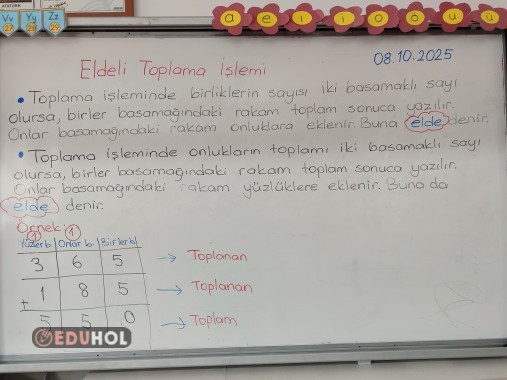 ATATÜRK
Vv Yy Zz
27 28 29
a e ı i o ö u ü
08.10.2025
Eldeli Toplama İşlemi
• Toplama işleminde birliklerin sayısı iki basamaklı sayı
olursa, birler basamağındaki rakam toplam sonuca yazılır.
Onlar basamağındaki rakam onluklara eklenir. Buna elde denir.
• Toplama işleminde onlukların toplamı iki basamaklı sayı
olursa, birler basamağındaki rakam toplam sonuca yazılır.
Onlar basamağındaki rakam yüzlüklere eklenir. Buna da
elde denir.
Örnek:
1 1
Yüzler b. Onlar b. Birler b.
3 6 5 → Toplanan
+ 1 8 5 → Toplanan
5 5 0 → Toplam
EDUHOL